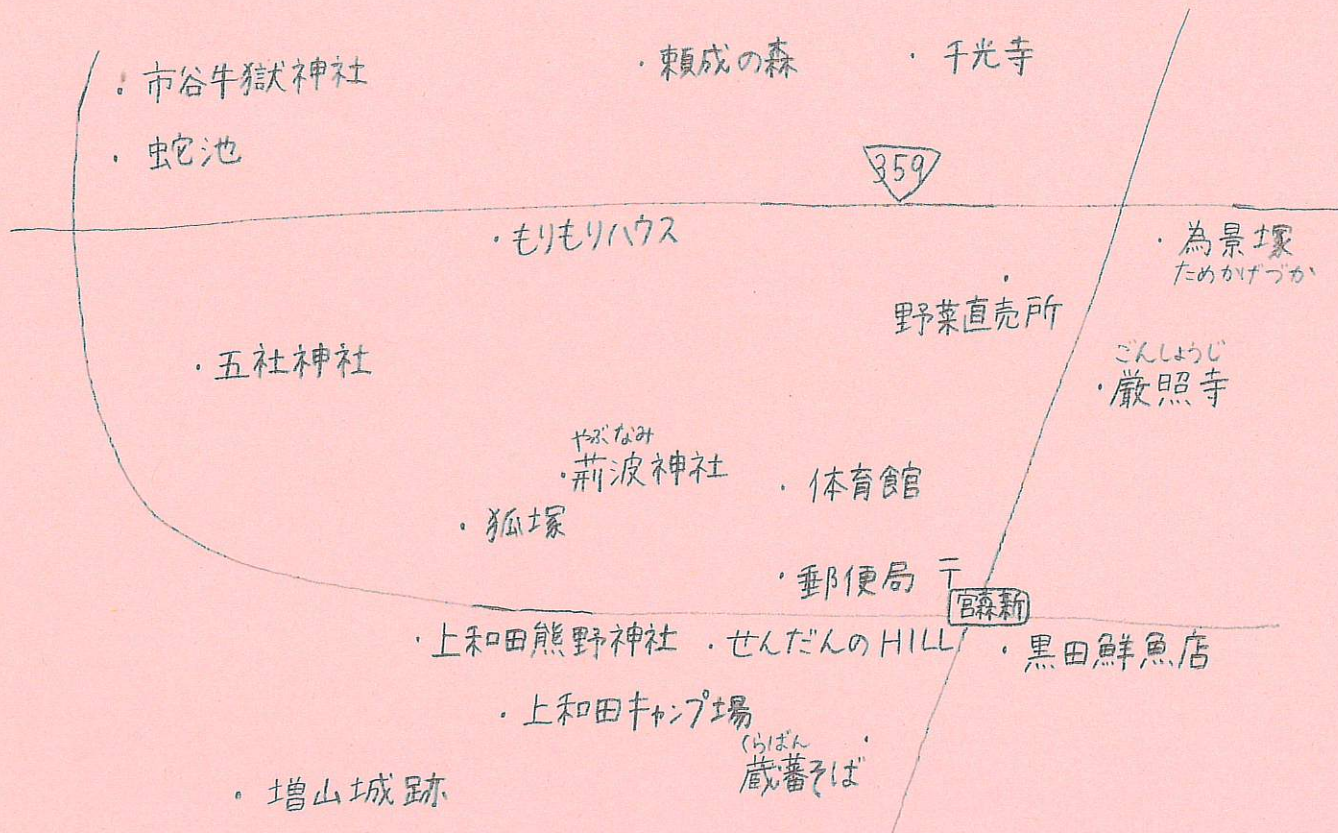 市谷牛獄神社
頼成の森
千光寺
蛇池
359
もりもりハウス
為景塚
ためかげづか
野菜直売所
五社神社
ごんしょうじ
厳照寺
やぶなみ
荊波神社
体育館
狐塚
郵便局 〒
宮森新
上和田熊野神社
せんだんのHILL
黒田鮮魚店
上和田キャンプ場
くらばん
蔵蕃そば
増山城跡